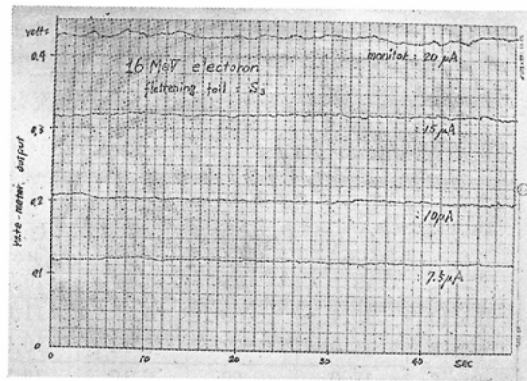 volts
0.4
16 MeV electoron
flettening foil : S3
monitor : 20 μA
0.3
: 15 μA
rate-meter output
0.2
: 10 μA
0.1
: 7.5 μA
0
0 10 20 30 40 SEC